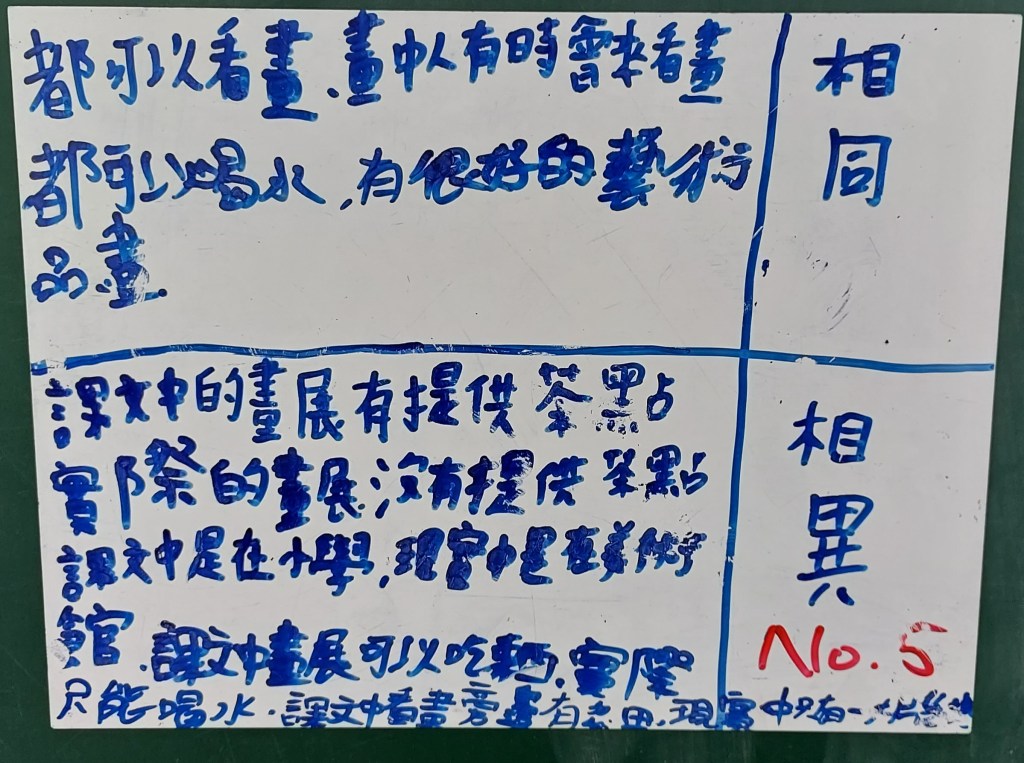 都可以看畫.畫中人有時會來看畫
都可以喝水,有很好的藝術
品畫.
相同
課文中的畫展有提供茶點
實際的畫展沒有提供茶點
課文中是在小學,現實中是在美術
館.課文中畫展可以吃東西,實際
只能喝水.課文中看畫旁邊有 現實中只有一大片
相異
No.5